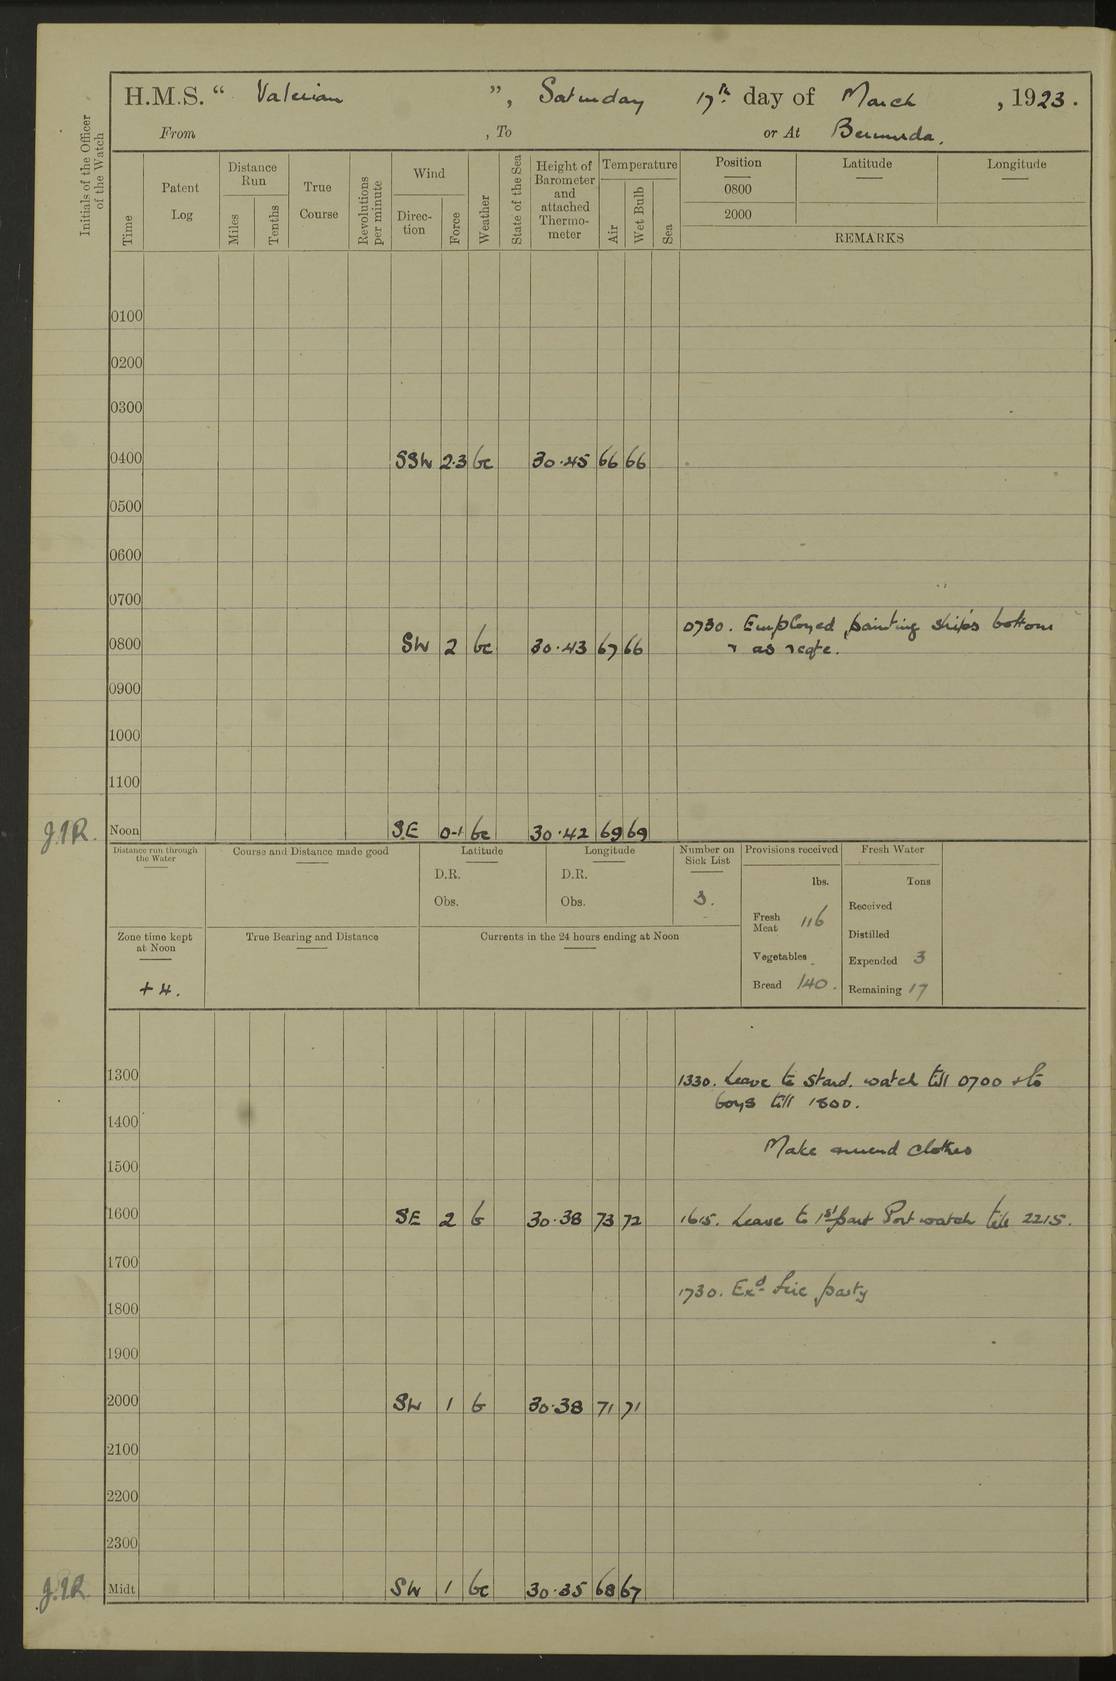 H.M.S. “ Valerian ”, Saturday 17th day of March , 1923.
From , To or At Bermuda.
Initials of the Officer of the Watch
Time
Patent Log
Distance Run
Miles
Tenths
True Course
Revolutions per minute
Wind
Direc-tion
Force
Weather
State of the Sea
Height of Barometer and attached Thermo-meter
Temperature
Air
Wet Bulb
Sea
Position Latitude Longitude
0800
2000
REMARKS
0100
0200
0300
0400 SSW 2.3 bc 30.45 66 66
0500
0600
0700
0730. Employed painting ship's bottom
0800 SW 2 bc 30.43 67 66
& as reqte.
0900
1000
1100
J.I.R. Noon S.E 0-1 bc 30.42 69 69
Distance run through the Water
Course and Distance made good
Latitude
D.R.
Obs.
Longitude
D.R.
Obs.
Number on Sick List
3.
Provisions received
lbs.
Fresh Meat 116
Vegetables
Bread 140.
Fresh Water
Tons
Received
Distilled
Expended 3
Remaining 17
Zone time kept at Noon
+ 4.
True Bearing and Distance
Currents in the 24 hours ending at Noon
1300 1330. Leave to stard. watch till 0700 & to
boys till 1800.
1400
Make & mend clothes
1500
1600 SE 2 b 30.38 73 72 1615. Leave to 1st part Port watch till 2215.
1700
1730. Exd. fire party
1800
1900
2000 SW 1 b 30.38 71 71
2100
2200
2300
J.I.R. Midt SW 1 bc 30.35 68 67